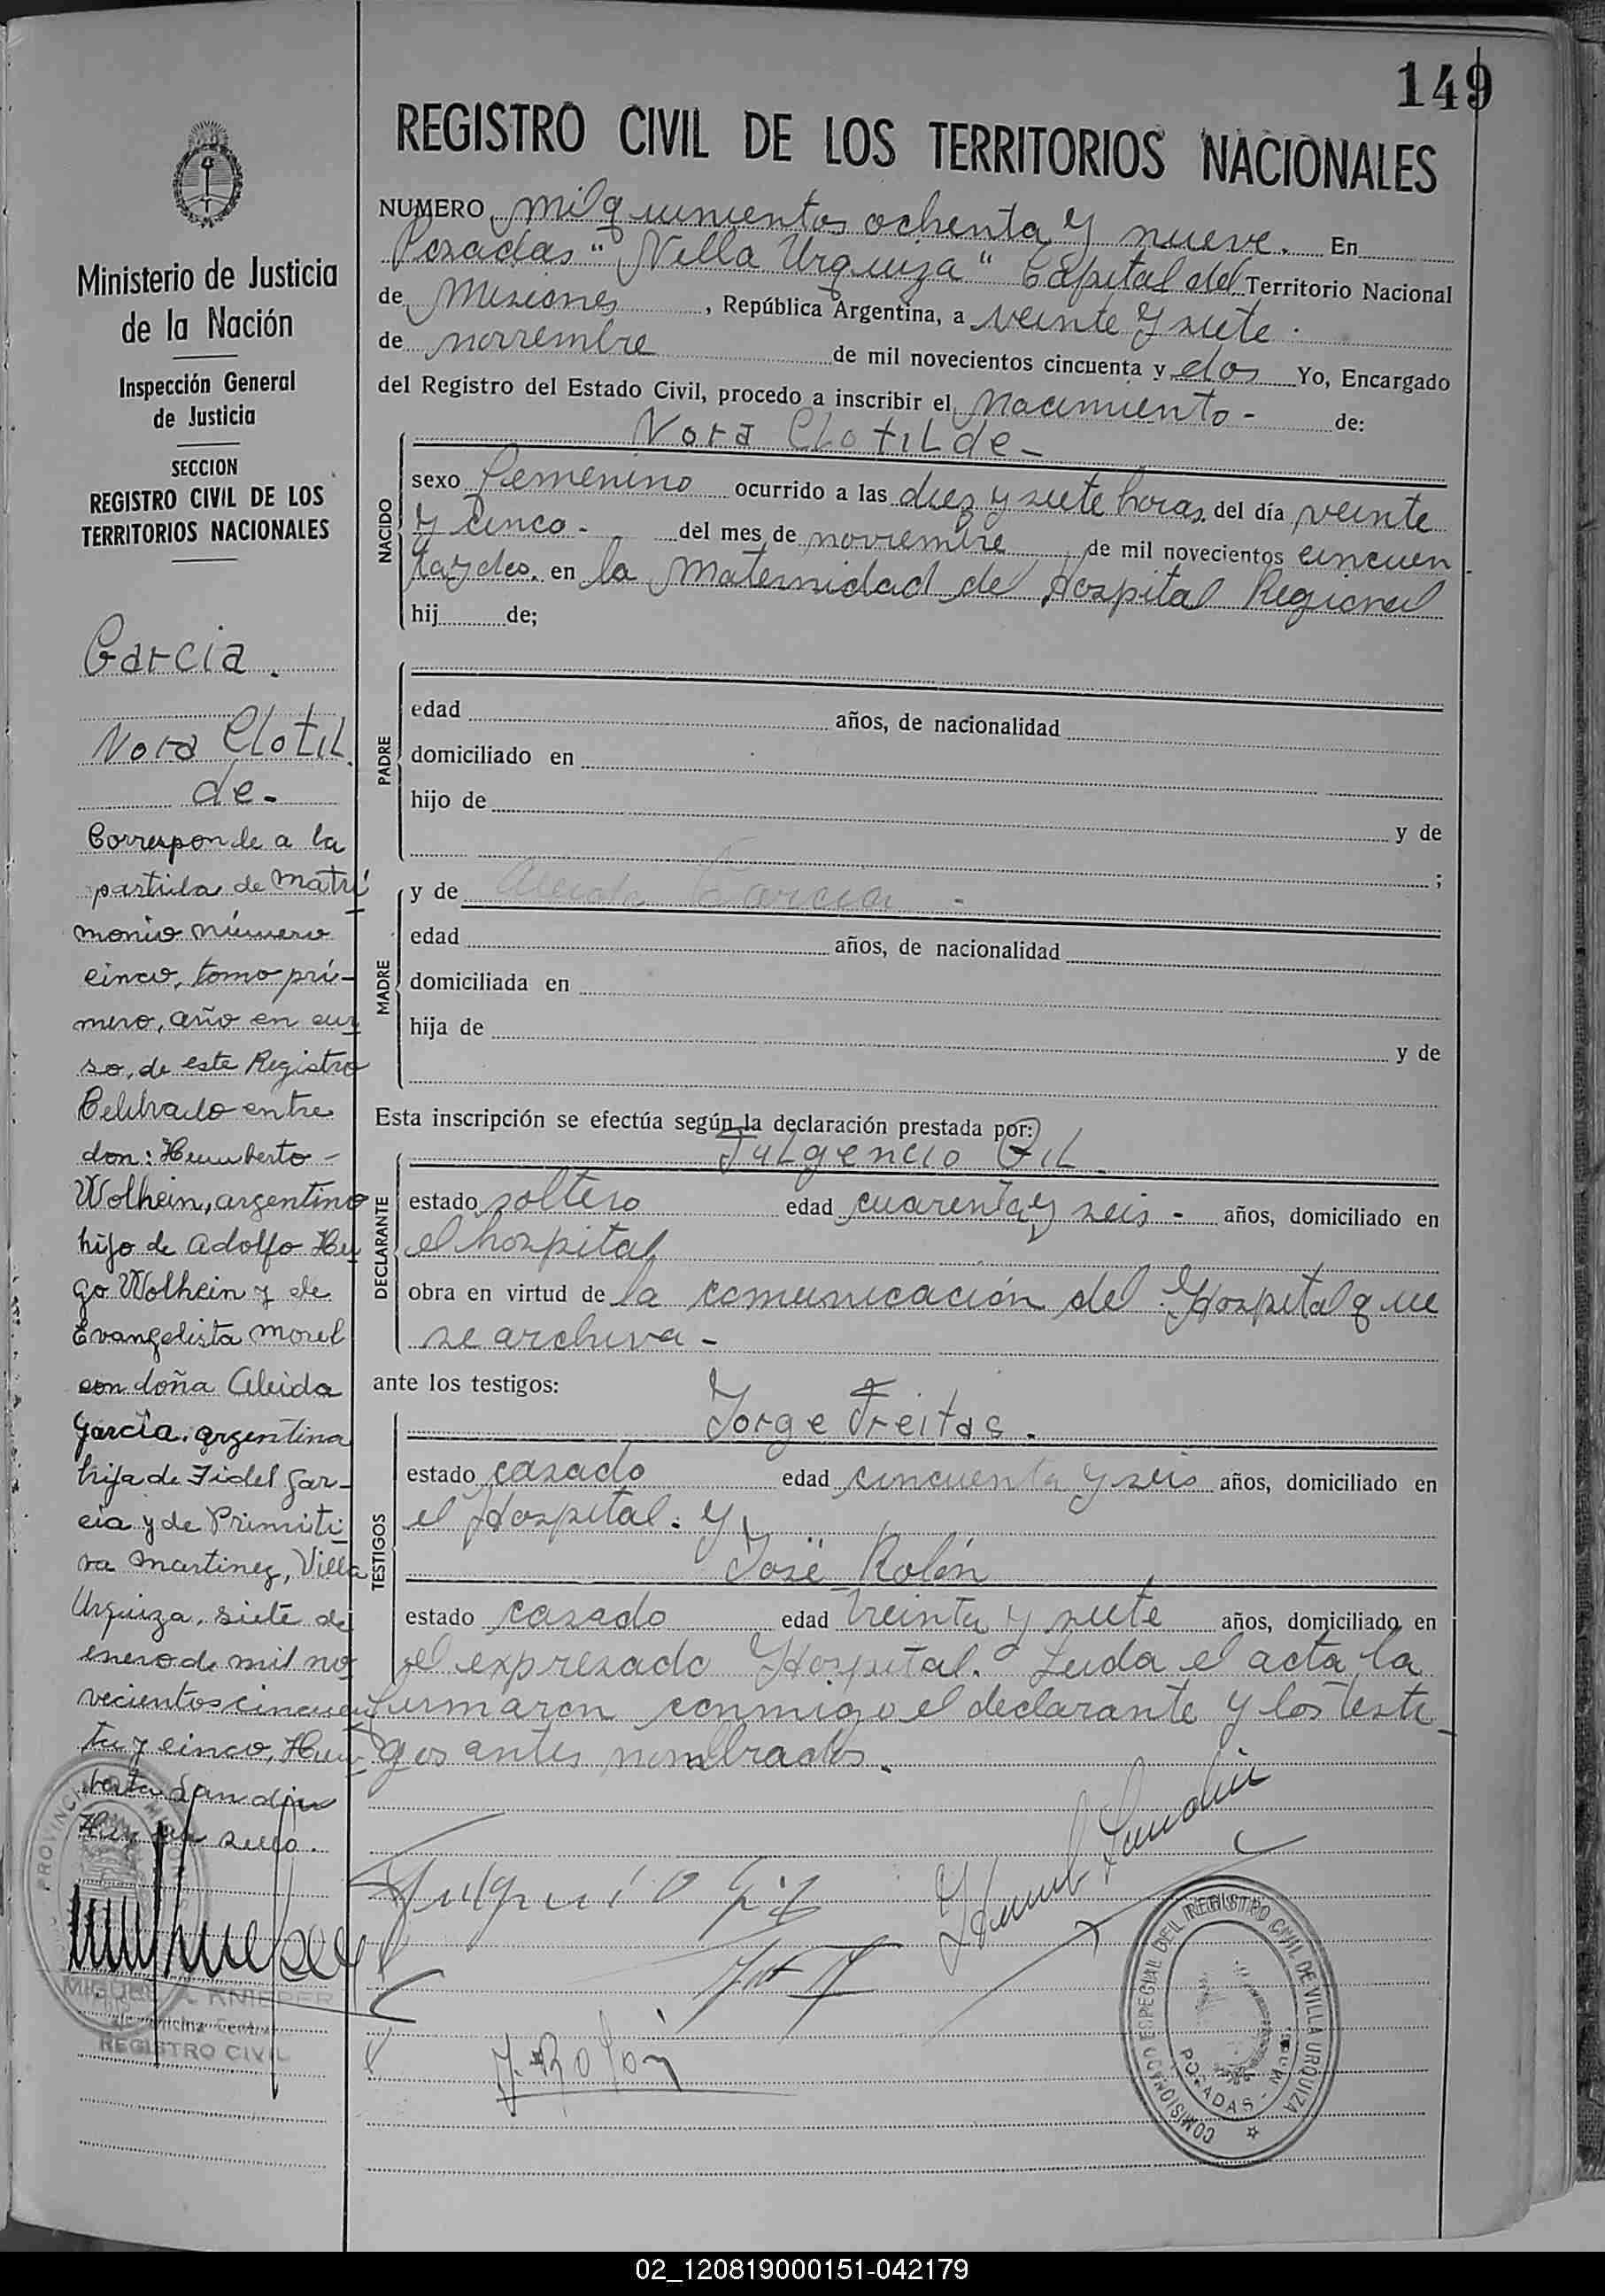 149
REGISTRO CIVIL DE LOS TERRITORIOS NACIONALES
Ministerio de Justicia
de la Nación
Inspección General
de Justicia
SECCION
REGISTRO CIVIL DE LOS
TERRITORIOS NACIONALES
Garcia.
Nora Clotil
de-
Corresponde a la
partida de Matri
monio número
cinco, tomo pri-
mero, año en cur
so, de este Registro
Celebrado entre
don: Humberto-
Wolhein, argentino
hijo de Adolfo Hu
go Wolhein y de
Evangelista Morel
con doña Aleida
García, argentina
hija de Fidel Gar-
cia y de Primiti
va Martinez, Villa
Urquiza, siete de
enero de mil no
vecientos cincuen
ta y cinco, Hum
berto Landin
Hay un sello.
PROVINCIA MISIONES
MIGUEL A. KNIEPER
Oficina Central
REGISTRO CIVIL
NUMERO mil quinientos ochenta y nueve. En
Posadas "Villa Urquiza" Capital del Territorio Nacional
de Misiones, República Argentina, a veinte y siete.
de noviembre de mil novecientos cincuenta y dos Yo, Encargado
del Registro del Estado Civil, procedo a inscribir el Nacimiento- de:
Nora Clotilde-
NACIDO
sexo femenino ocurrido a las diez y siete horas. del día veinte
y cinco- del mes de noviembre de mil novecientos cincuen
ta y dos. en la Maternidad de Hospital Regional
hij de;
PADRE
edad años, de nacionalidad
domiciliado en
hijo de y de
;
MADRE
y de Aleida Garcia -
edad años, de nacionalidad
domiciliada en
hija de y de
Esta inscripción se efectúa según la declaración prestada por:
Fulgencio Gil.
DECLARANTE
estado soltero edad cuarenta y seis- años, domiciliado en
el hospital
obra en virtud de la comunicación del Hospital que
se archiva-
ante los testigos:
Jorge Freitas.
TESTIGOS
estado casado edad cincuenta y seis años, domiciliado en
el Hospital. y
José Rolón
estado casado edad treinta y siete años, domiciliado en
el expresado Hospital. Leida el acta, la
firmaron conmigo el declarante y los testi-
gos antes nombrados.
Humb Landin
Fulgencio Gil
J. Rolon
COMISIONADO ESPECIAL DEL REGISTRO CIVIL DE VILLA URQUIZA
POSADAS -
02_120819000151-042179